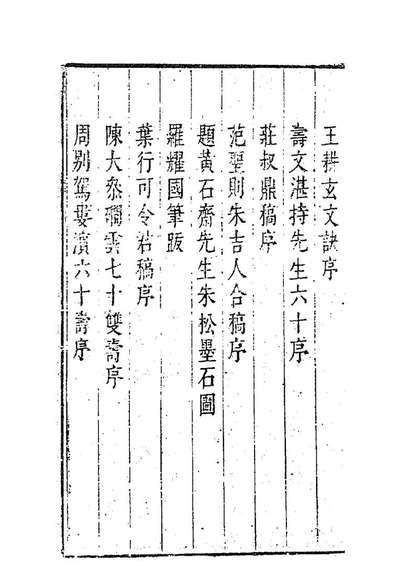 王耕玄文訣序
壽文湛持先生六十序
莊叔鼎稿序
范璽則朱吉人合稿序
題黃石齋先生朱松墨石圖
羅耀國筆跋
葉行可令君稿序
陳大參瓓雲七十雙壽序
周別駕婁濱六十壽序